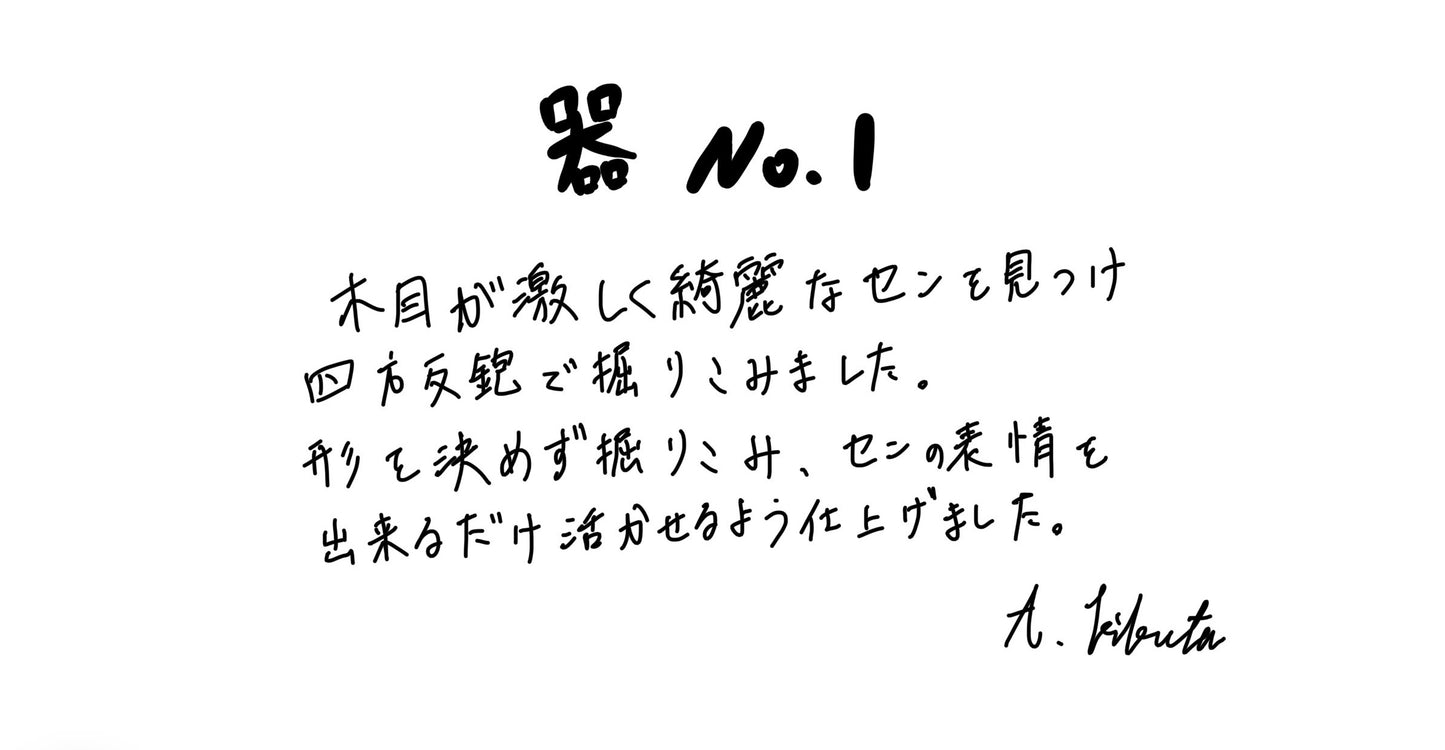 器 No.1
木目が激しく綺麗なセンを見つけ
四方反鉋で掘りこみました。
形を決めず掘りこみ、センの表情を
出来るだけ活かせるよう仕上げました。
A. Kikuta